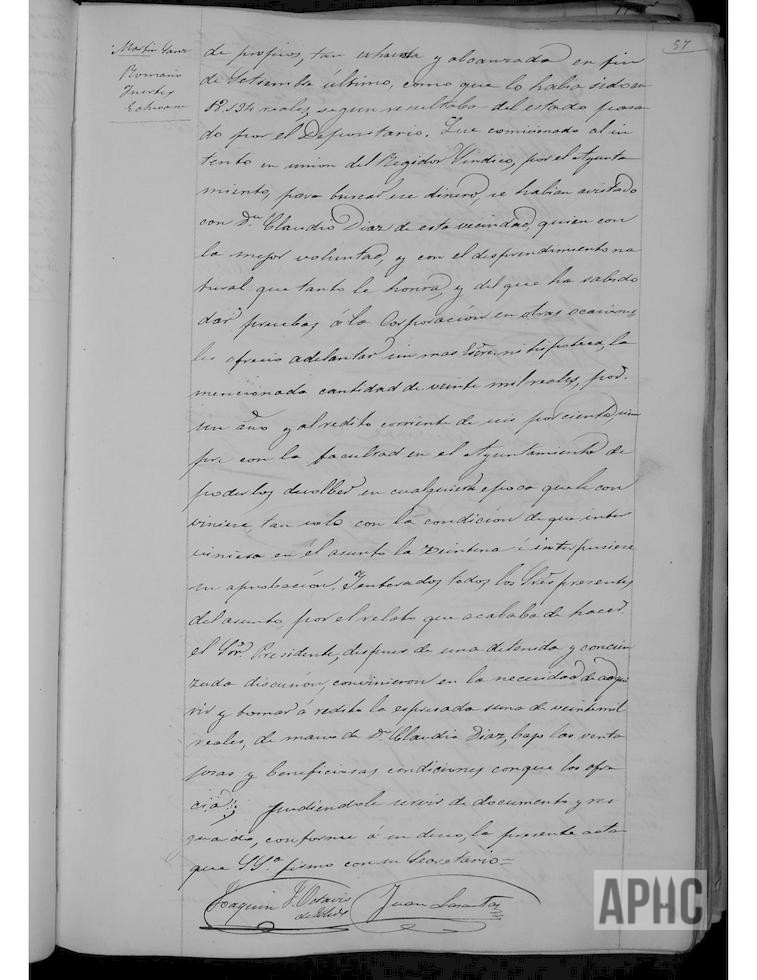 57
Martin Sanz
Romario
Fuertes
Echevarr
de propios, tan exhausta y alcanzada en fin
de Setiembre último, como que lo habia sido en
18.134 reales, segun resultaba del estado pasa
do por el Depositario. Que comisionado al in
tento en union del Regidor Sindico, por el Ayunta
miento, para buscar ese dinero, se habian avistado
con Dn. Claudio Diaz de esta vecindad, quien con
la mejor voluntad, y con el desprendimiento na
tural que tanto le honra, y del que ha sabido
dar pruebas á la Corporación en otras ocasiones
les ofrecio adelantar sin mas Escre. ni hipoteca, la
mencionada cantidad de veinte mil reales, por
un año y al redito corriente de seis por ciento, siem
pre con la facultad en el Ayuntamiento de
poderlos devolber en cualquiera epoca que le con
viniese, tan solo con la condición de que inter
viniera en el asunto la Quintena é interpusiese
su aprobación. Y enterados todos los Sres. presentes
del asunto, por el relato que acababa de hacer
el Sor. Presidente, despues de una detenida y concien
zuda discusión, convinieron en la necesidad de adqui
rir y tomar á redito la espresada suma de veinte mil
reales, de mano de Dn. Claudio Diaz, bajo las venta
josas y beneficiosas condiciones con que los ofre
cia; pudiendole servir de documento y res
guardo, conforme á su deseo, la presente acta
que SSa. firmo con su Secretario =
Joaquin F. Octavio
de Toledo
Juan
APHC